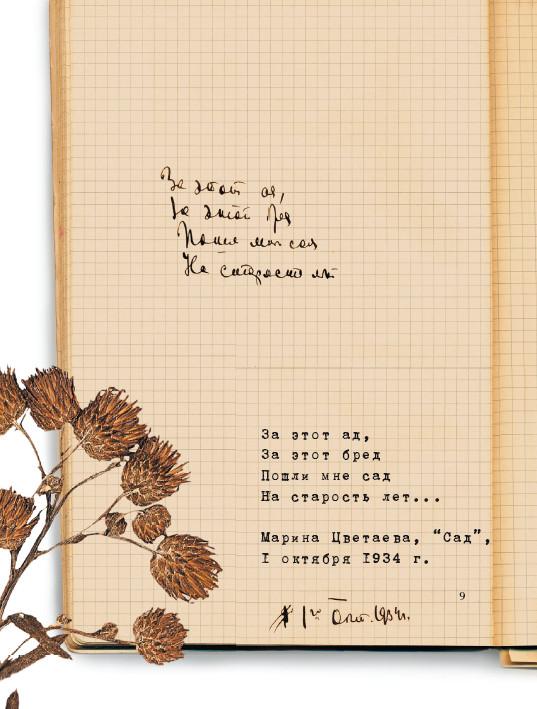 За этот ад,
За этот бред
Пошли мне сад
На старость лет
За этот ад,
За этот бред
Пошли мне сад
На старость лет...
Марина Цветаева, “Сад”,
I октября I934 г.
9
1го Окт. 1934г.